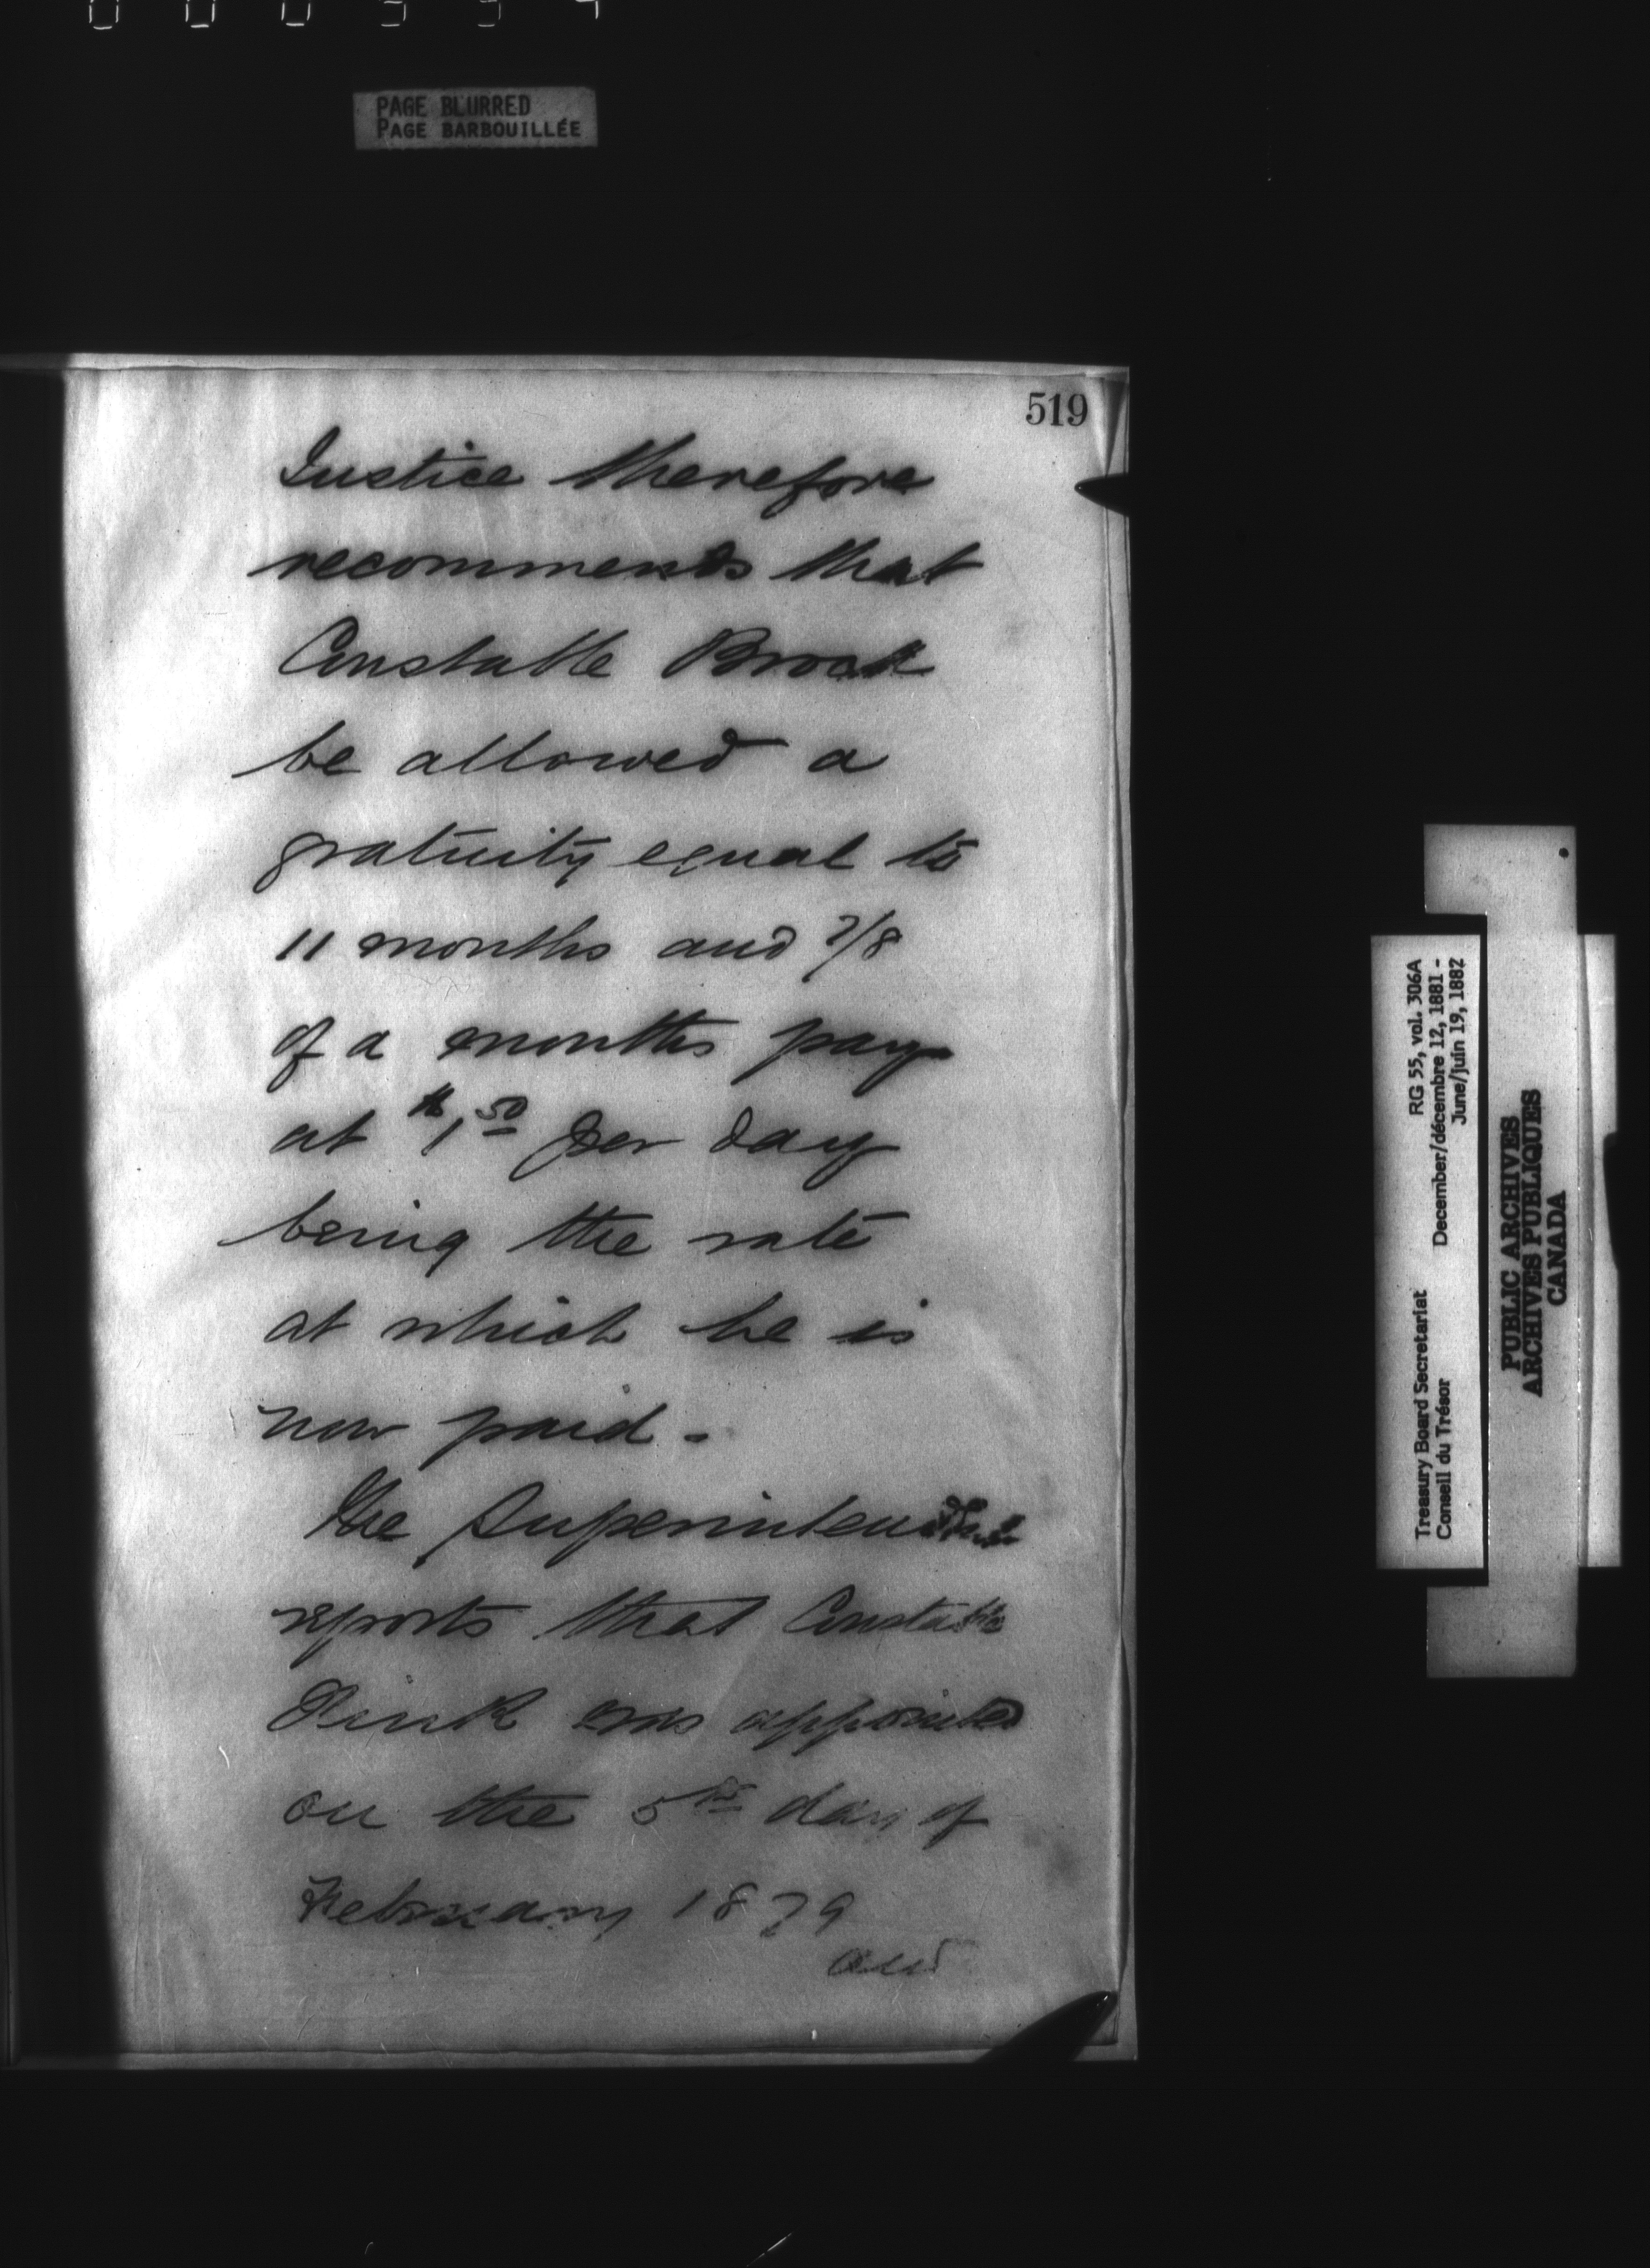 PAGE BLURRED
PAGE BARBOUILLÉE
519
Justice therefore
recommends that
Constable Brook
be allowed a
gratuity equal to
11 months and 7/8
of a months pay
at $1,50 per day
being the rate
at which he is
now paid.
The Superintendent
reports that Constable
Pink was appointed
on the 5th day of
February 1879
and
RG 55, vol. 306A
December/décembre 12, 1881 -
June/juin 19, 1882
Treasury Board Secretariat
Conseil du Trésor
PUBLIC ARCHIVES
ARCHIVES PUBLIQUES
CANADA